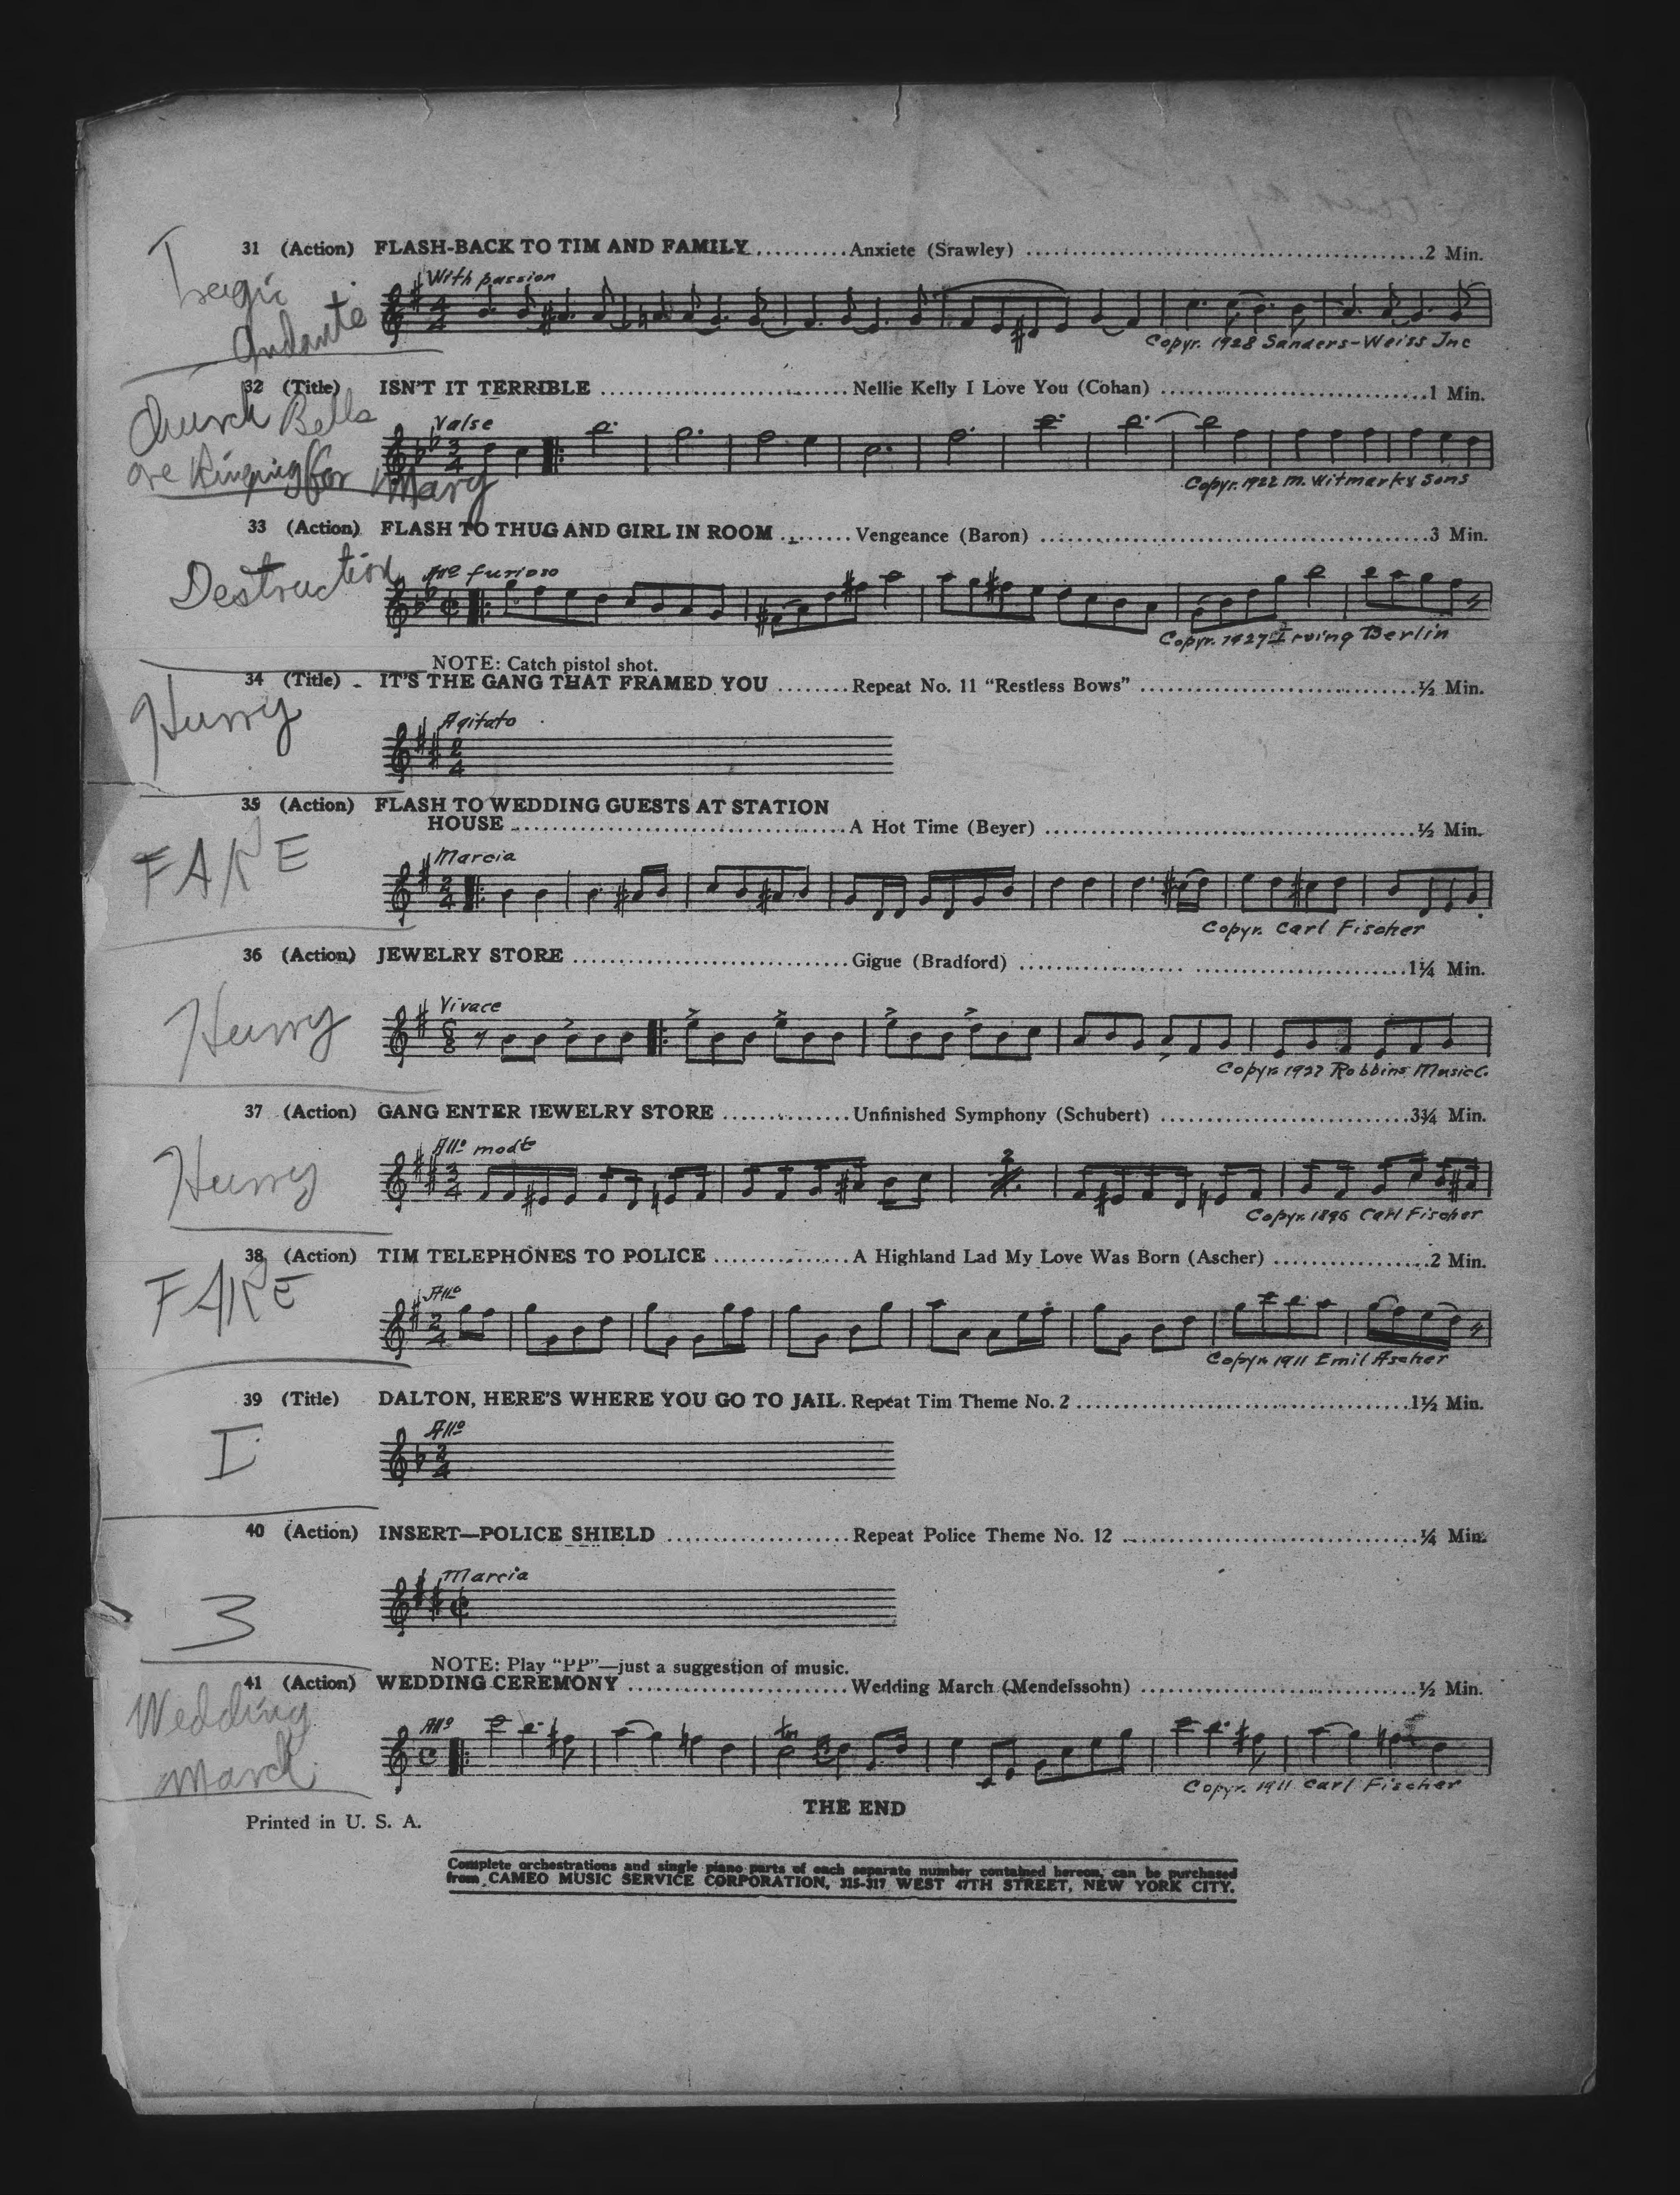 31 (Action) FLASH-BACK TO TIM AND FAMILY..........Anxiete (Srawley) ..........2 Min.
Tragic
Andante
With passion
Copyr. 1928 Sanders-Weiss Inc
32 (Title) ISN'T IT TERRIBLE ..........Nellie Kelly I Love You (Cohan) ..........1 Min.
Church Bells
are Ringing for Mary
Valse
Copyr. 1922 M. Witmark & Sons
33 (Action) FLASH TO THUG AND GIRL IN ROOM ........Vengeance (Baron) ..........3 Min.
Destruction
Allo furioso
Copyr. 1927 Irving Berlin
NOTE: Catch pistol shot.
34 (Title) IT'S THE GANG THAT FRAMED YOU ........Repeat No. 11 "Restless Bows" ..........½ Min.
Hurry
Agitato
35 (Action) FLASH TO WEDDING GUESTS AT STATION
HOUSE ..........A Hot Time (Beyer) ..........½ Min.
FAKE
Marcia
Copyr. Carl Fischer
36 (Action) JEWELRY STORE ..........Gigue (Bradford) ..........1¼ Min.
Hurry
Vivace
Copyr. 1927 Robbins Music C.
37 (Action) GANG ENTER JEWELRY STORE ..........Unfinished Symphony (Schubert) ..........3¾ Min.
Hurry
Allo modt
2
Copyr. 1896 Carl Fischer
38 (Action) TIM TELEPHONES TO POLICE ..........A Highland Lad My Love Was Born (Ascher) ..........2 Min.
FAKE
Allo
Copyr. 1911 Emil Ascher
39 (Title) DALTON, HERE'S WHERE YOU GO TO JAIL. Repeat Tim Theme No. 2 ..........1½ Min.
I
Allo
40 (Action) INSERT—POLICE SHIELD ..........Repeat Police Theme No. 12 ..........¼ Min.
3
Marcia
NOTE: Play "PP"—just a suggestion of music.
41 (Action) WEDDING CEREMONY ..........Wedding March (Mendelssohn) ..........½ Min.
Wedding
March
Allo
tr
Copyr. 1911 Carl Fischer
THE END
Printed in U. S. A.
Complete orchestrations and single piano parts of each separate number contained hereon, can be purchased
from CAMEO MUSIC SERVICE CORPORATION, 315-317 WEST 47TH STREET, NEW YORK CITY.